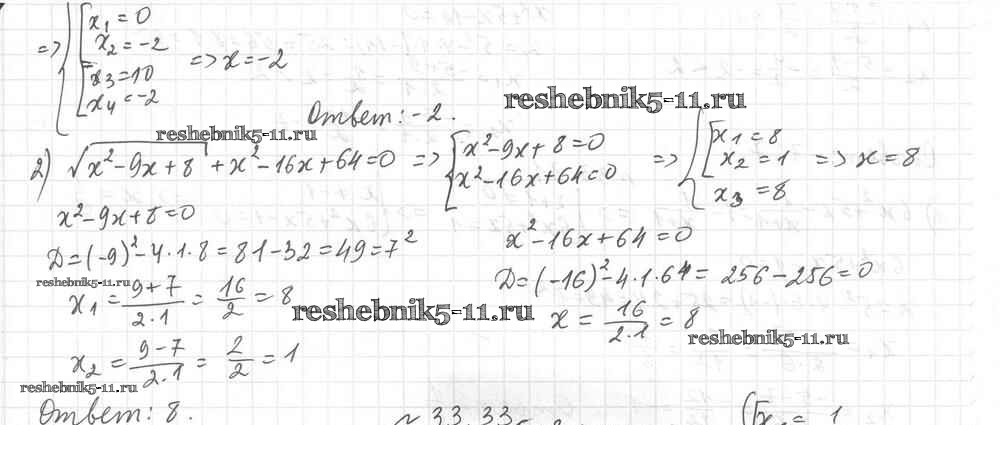 => { [ x₁ = 0
x₂ = -2
[ x₃ = 10
x₄ = -2 => x = -2
Ответ: -2.
reshebnik5-11.ru
reshebnik5-11.ru
2) √(x² - 9x + 8) + x² - 16x + 64 = 0 => { x² - 9x + 8 = 0
x² - 16x + 64 = 0 => { [ x₁ = 8
x₂ = 1
x₃ = 8 => x = 8
x² - 9x + 8 = 0
D = (-9)² - 4·1·8 = 81 - 32 = 49 = 7²
reshebnik5-11.ru
x₁ = (9+7)/(2·1) = 16/2 = 8
reshebnik5-11.ru
x₂ = (9-7)/(2·1) = 2/2 = 1
reshebnik5-11.ru
Ответ: 8.
x² - 16x + 64 = 0
D = (-16)² - 4·1·64 = 256 - 256 = 0
x = 16/(2·1) = 8
reshebnik5-11.ru